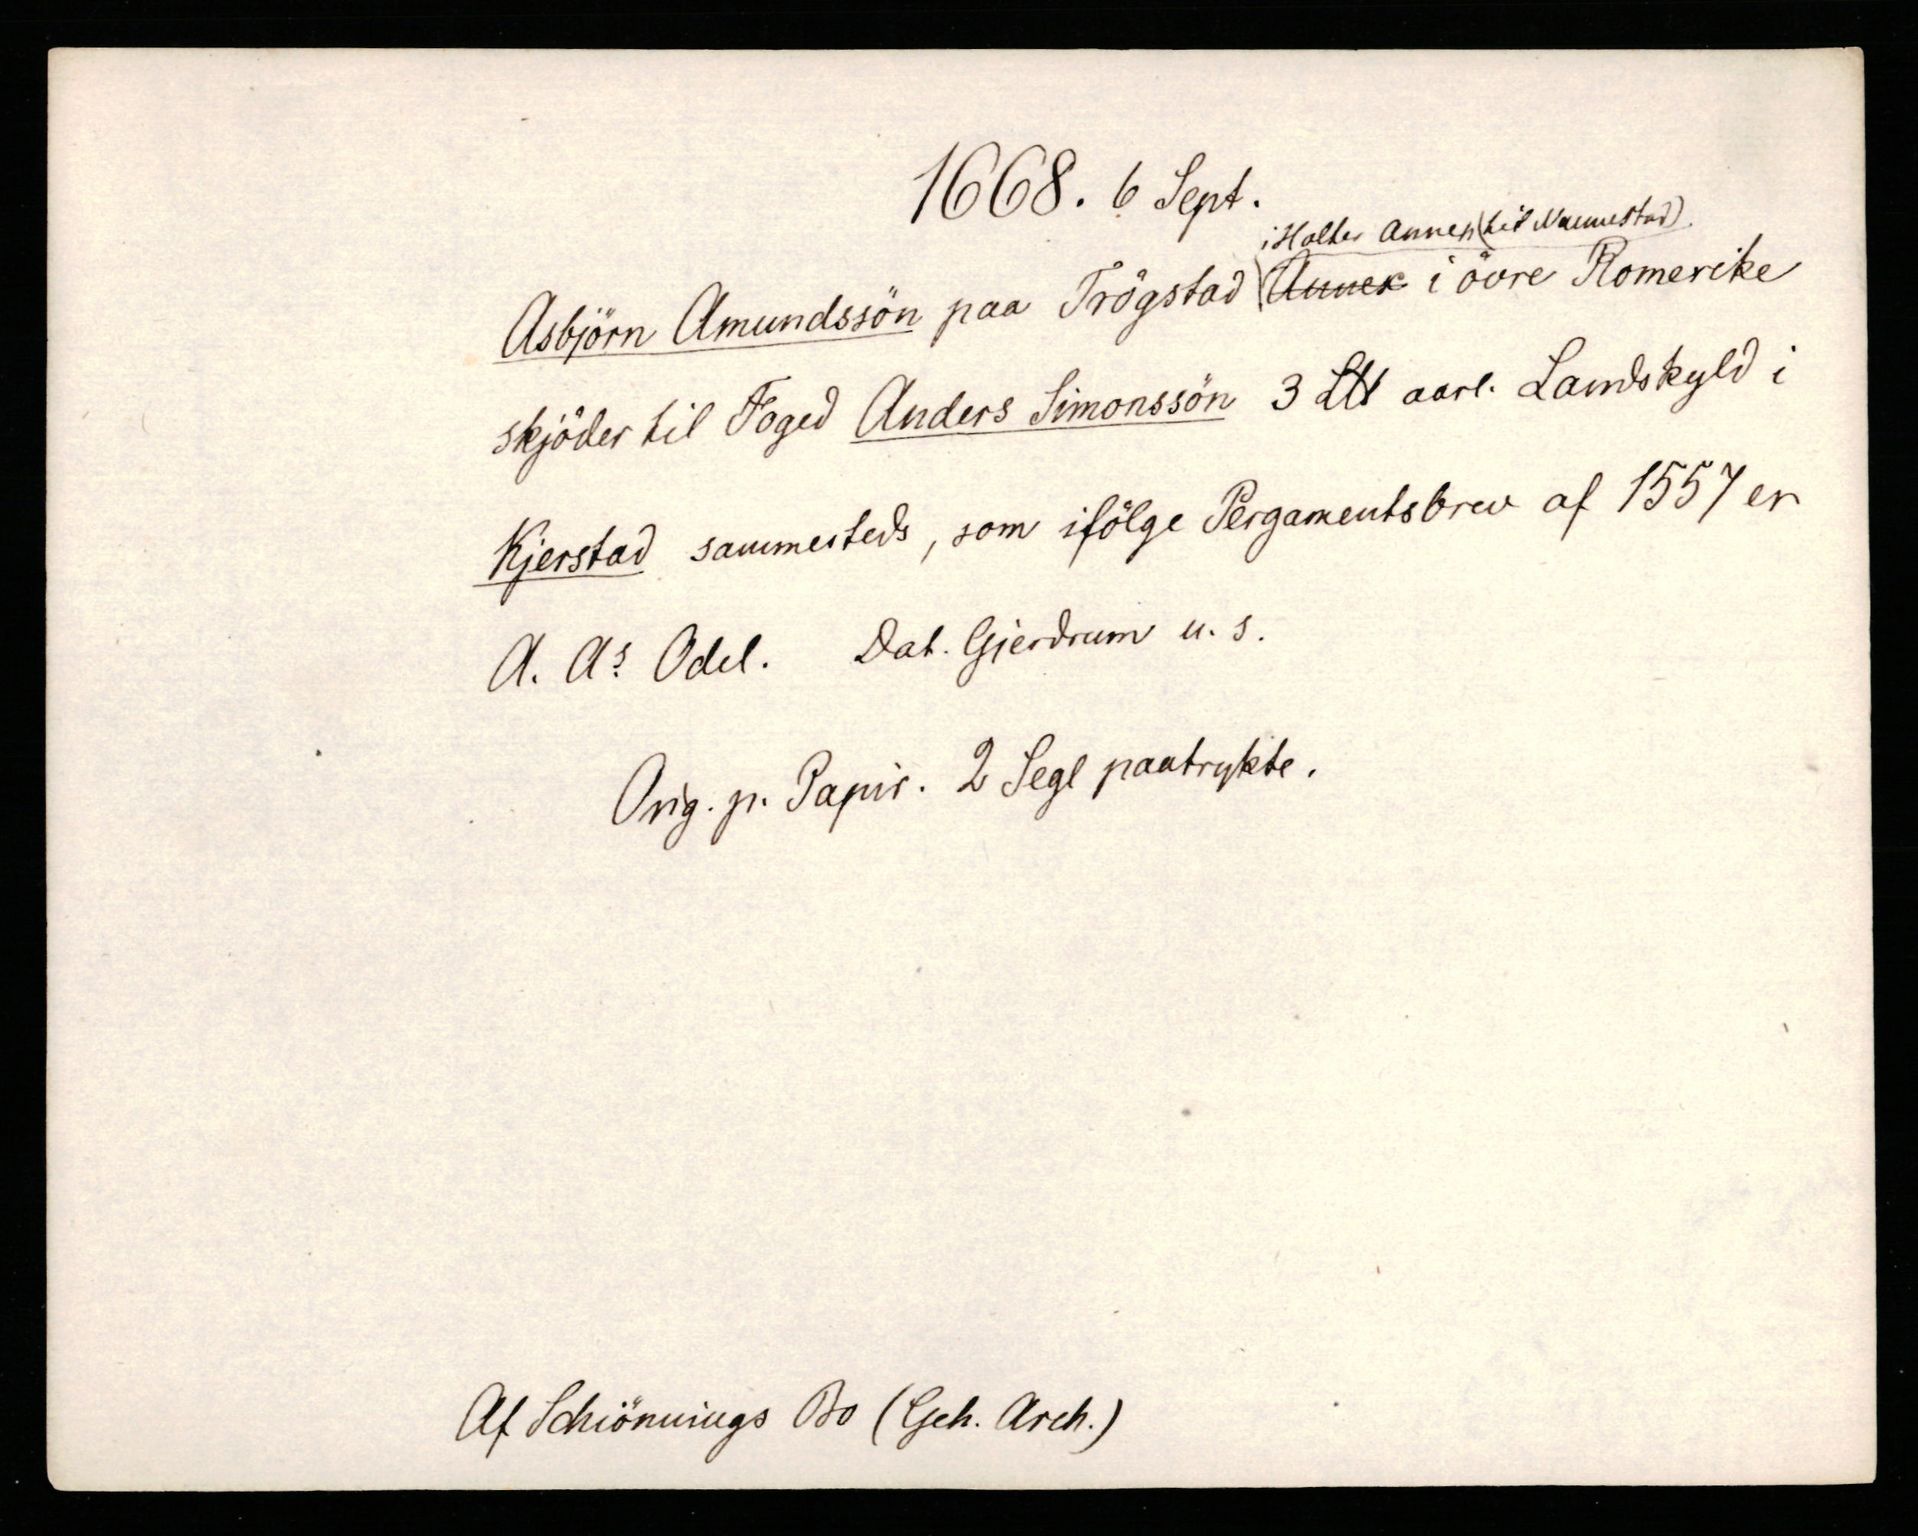 1668. 6 Sept.
i Holter Annex (til Nannestad).
Asbjörn Amundssön paa Trögstad (Annex i övre Romerike
skjöder til Foged Anders Simonssön 3 L℔ aarl. Landskyld i
Kjerstad sammesteds, som ifölge Pergamentsbrev af 1557 er
A. As Odel. Dat. Gjerdrum u. s.
Orig. p. Papir. 2 Segl paatrykte.
Af Schiönnings Bo (Geh. Arch.)